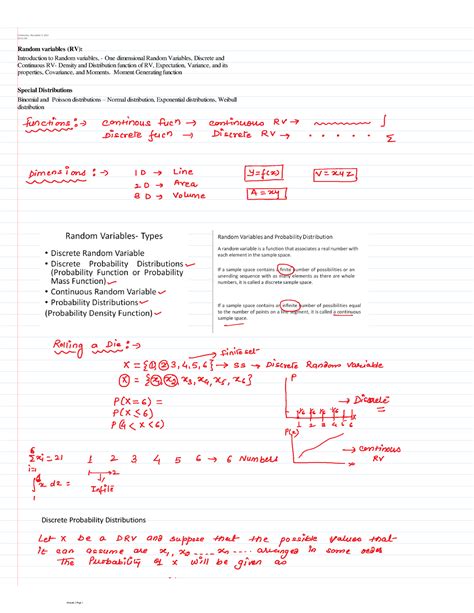 Random variables (RV):
Introduction to Random variables. - One dimensional Random Variables, Discrete and
Continuous RV- Density and Distribution function of RV, Expectation, Variance, and its
properties, Covariance, and Moments. Moment Generating function
Special Distributions
Binomial and Poisson distributions – Normal distribution, Exponential distributions, Weibull
distribution
functions :→ continous fucn → continuous RV → ∫
Discrete fucn → Discrete RV → . . . . . Σ
Dimensions :→ 1D → Line y=f(x) V=xyz
2D → Area A=xy
3D → Volume
Random Variables- Types
• Discrete Random Variable
• Discrete Probability Distributions
(Probability Function or Probability
Mass Function)
• Continuous Random Variable
• Probability Distributions
(Probability Density Function)
Random Variables and Probability Distribution
A random variable is a function that associates a real number with
each element in the sample space.
If a sample space contains a finite number of possibilities or an
unending sequence with as many elements as there are whole
numbers, it is called a discrete sample space.
If a sample space contains an infinite number of possibilities equal
to the number of points on a line segment, it is called a continuous
sample space.
Rolling a Die :→
finite set
X = {1,2,3,4,5,6} → SS → Discrete Random Variable
X = {x1,x2,x3,x4,x5,x6}
P(X=6) =
P(X≤6)
P(4<X<6)
P
→ Discrete
1/6 1/6 1/6 1/6 1/6 1/6
1 2 3 4 5 6
P(x)
→ continous
RV
x
6
Σxi = 21 1 2 3 4 5 6 → 6 Numbers
i=1
∫ x dx =
1→2
Discrete Probability Distributions
Let X be a DRV and suppose that the possible values that
it can assume are x1, x2 .... xn .... arranged in some order
The Probability of X will be given as